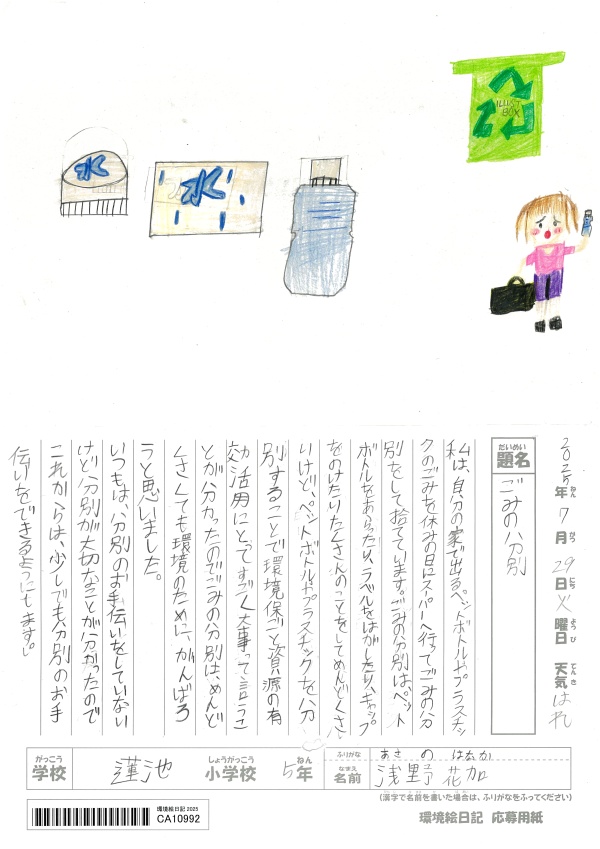 ILLUST
BOX
水
水
2025年ねん7月がつ29日にち火曜日ようび 天気てんきはれ
題名だいめい ごみの分別
私は、自分の家で出るペットボトルやプラスチッ
クのごみを休みの日にスーパーへ行ってごみの分
別をして捨てています。ごみの分別はペット
ボトルをあらったり、ラベルをはがしたり、キャップ
をのけたりたくさんのことをしてめんどくさ
いけど、ペットボトルやプラスチックを分
別することで環境保ごと資源の有
効活用にとてすごく大事って言うこ
とが分かったのでごみの分別は、めんど
くさくても環境のために、がんばろ
うと思いました。
いつもは、分別のお手伝いをしていない
けど分別が大切なことが分かったので
これからは、少しでも分別のお手
伝いをできるようにします。
学校がっこう 蓮池 小学校しょうがっこう 5年ねん
ふりがな あさの はなか
名前なまえ 浅野 花加
(漢字で名前を書いた場合は、ふりがなをふってください)
環境絵日記 2025
CA10992
環境絵日記 応募用紙